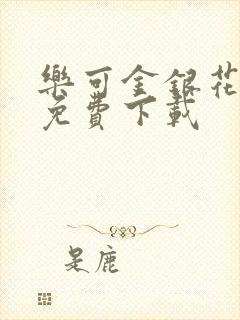 樂可金銀花
免費下載
是鹿